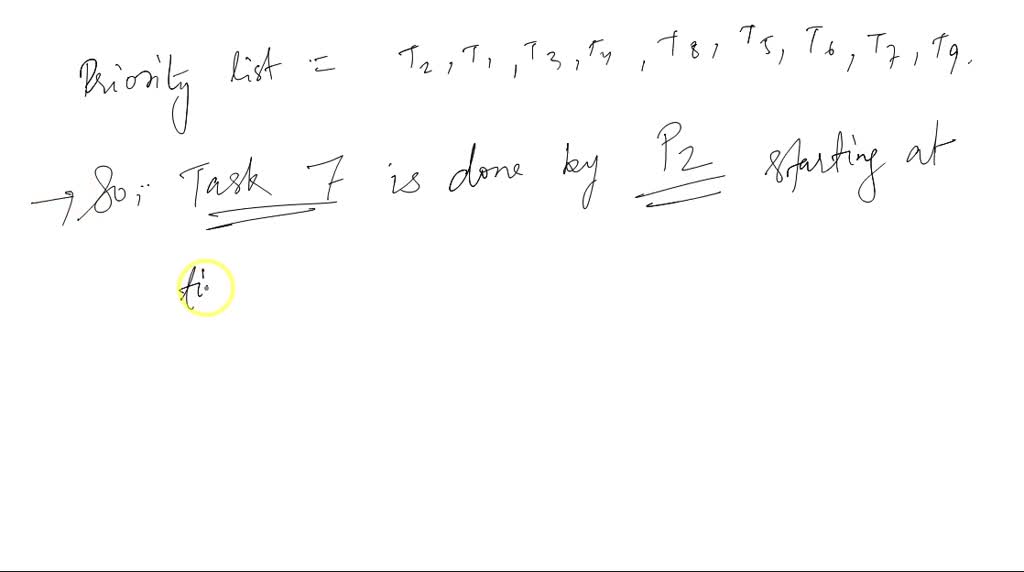 Priority list = T2, T1, T3, T4, T8, T5, T6, T7, T9.
→ So,- Task 7 is done by P2 starting at
ti